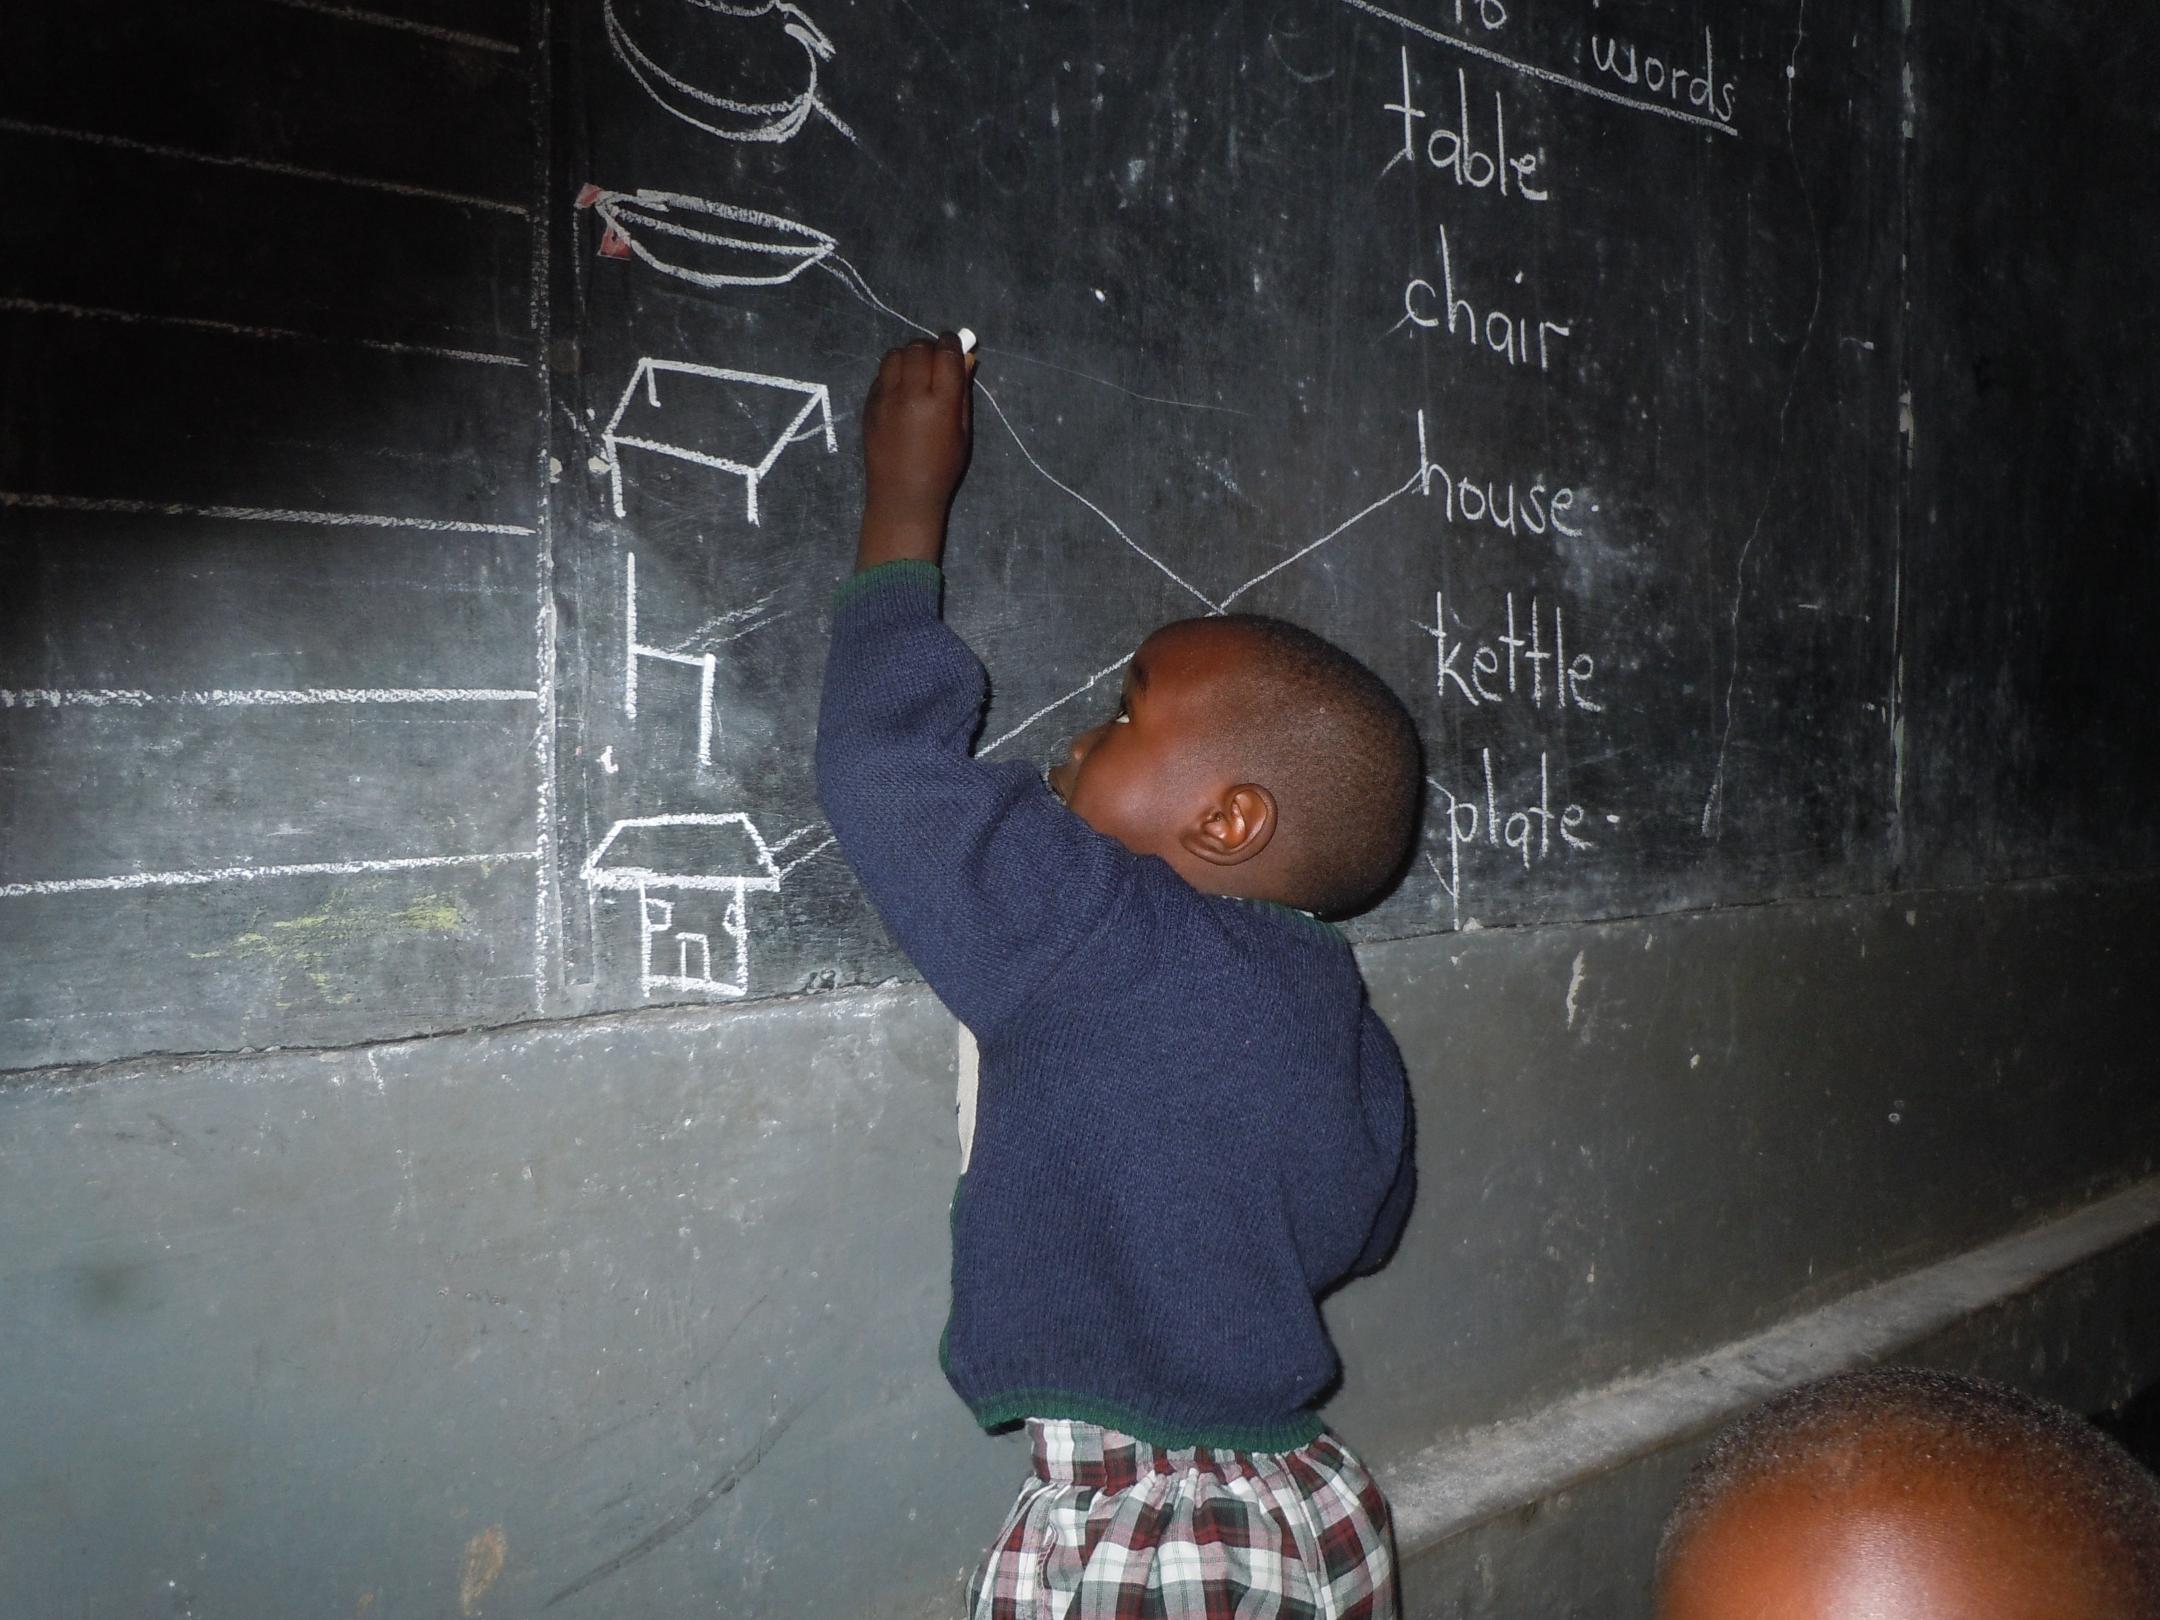 to words
table
chair
house
kettle
plate